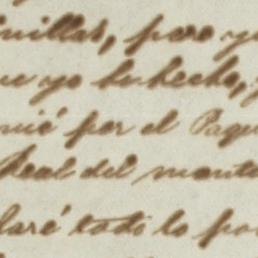 uillas, pero y
ue yo he hecho, y
nié por el Paqu
Real del monte
laré todo lo po